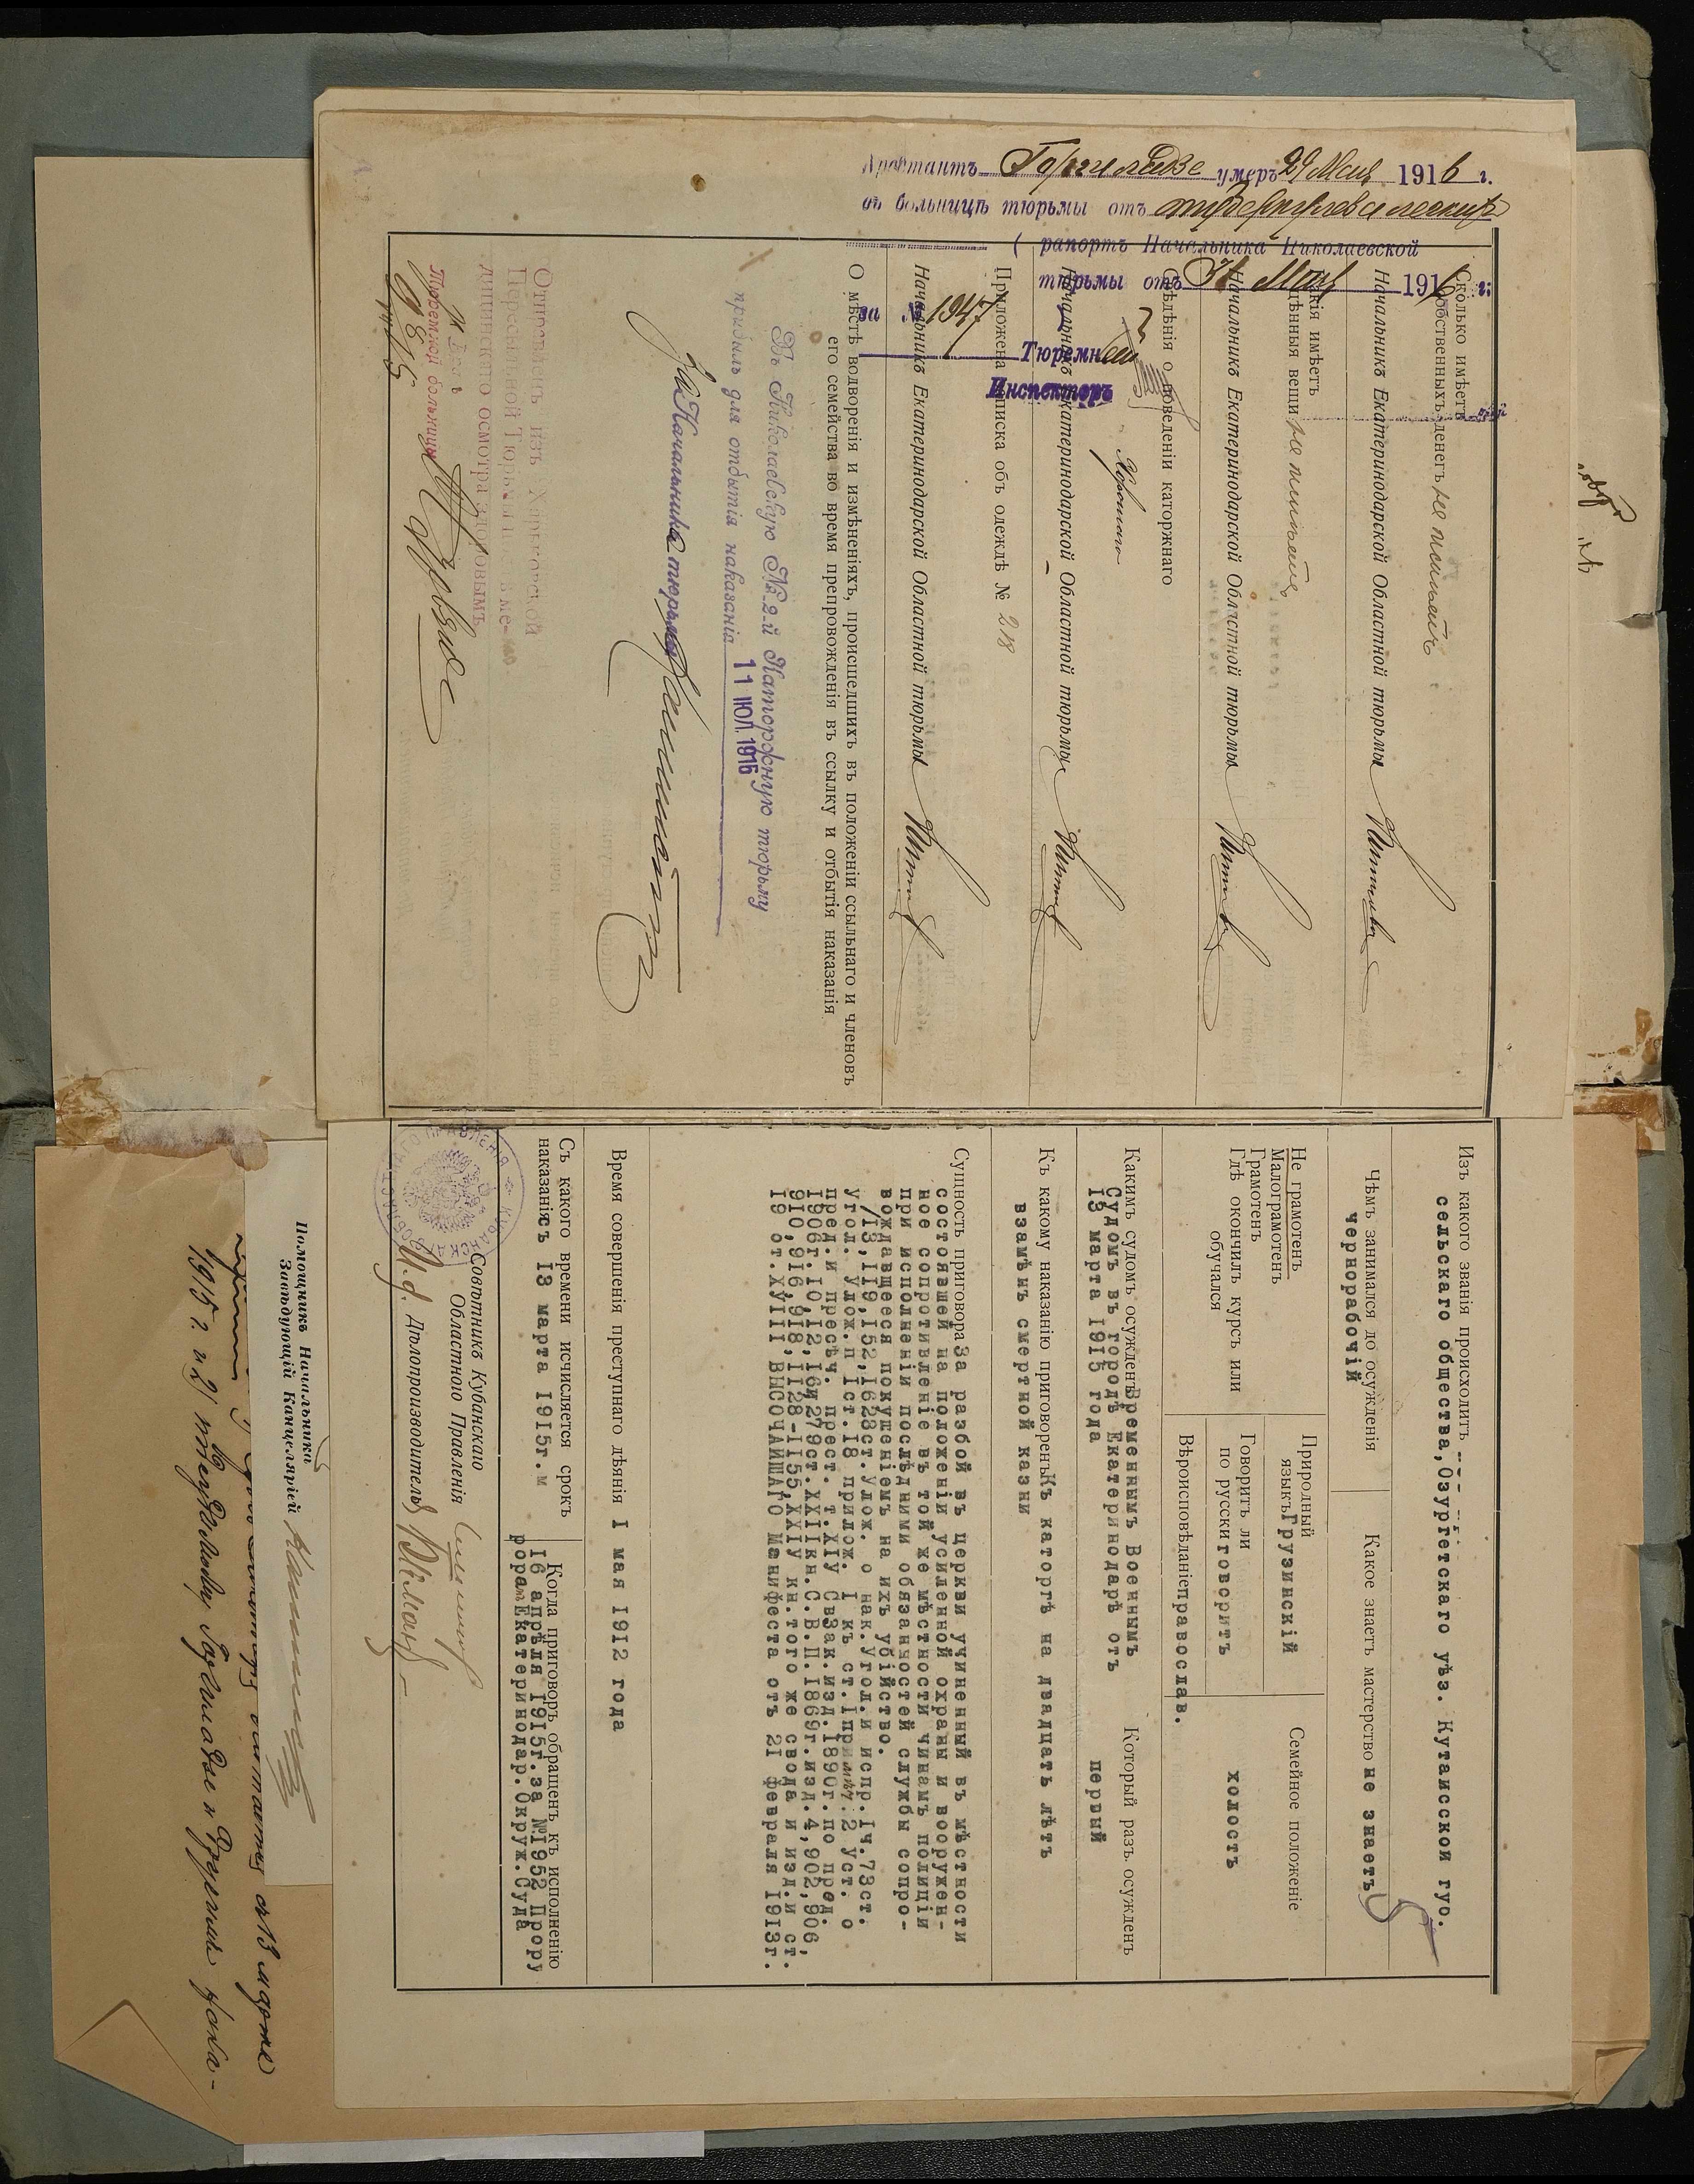 Арестантъ Горгиладзе умеръ 29 Мая 1916 г.
въ больницѣ тюрьмы отъ туберкулеза легкихъ
( рапортъ Начальника Николаевской
тюрьмы отъ 31 Мая 1916 г.
за № 1947
Тюремный
Инспекторъ
Сколько имѣетъ
собственныхъ денегъ не имѣетъ
Начальникъ Екатеринодарской Областной тюрьмы
Какія имѣетъ
цѣнныя вещи не имѣетъ
Начальникъ Екатеринодарской Областной тюрьмы
Свѣдѣнія о поведеніи каторжнаго
Хорошаго
Начальникъ Екатеринодарской Областной тюрьмы
Приложена описка объ одеждѣ № 218
Начальникъ Екатеринодарской Областной тюрьмы
О мѣстѣ водворенія и измѣненіяхъ, происшедшихъ въ положеніи ссыльнаго и членовъ
его семейства во время препровожденія въ ссылку и отбытія наказанія
Въ Николаевскую № 2-й Каторжную тюрьму
прибылъ для отбытія наказанія 11 ІЮЛ 1915
За Начальника тюрьмы
Отправленъ изъ Харьковской
Пересыльной Тюрьмы по ме-
дицинскаго осмотра здоровымъ
Тюремной больницы
Изъ какого званія происходитъ
сельскаго общества, Озургетскаго уѣз. Кутаисской губ.
Чѣмъ занимался до осужденія
чернорабочій
Какое знаетъ мастерство не знаетъ
Не грамотенъ
Малограмотенъ
Грамотенъ
Гдѣ окончилъ курсъ или
обучался
Природный
языкъ Грузинскій
Говоритъ ли
по русски говоритъ
Вѣроисповѣданіе православ.
Семейное положеніе
холостъ
Какимъ судомъ осужденъ Временнымъ Военнымъ
Судомъ въ городѣ Екатеринодарѣ отъ
13 марта 1915 года
Который разъ осужденъ
первый
Къ какому наказанію приговоренъ Къ каторгѣ на двадцать лѣтъ
взамѣнъ смертной казни
Сущность приговора За разбой въ церкви учиненный въ мѣстности
состоявшей на положеніи усиленной охраны и вооружен-
ное сопротивленіе въ той же мѣстности чинамъ полиціи
при исполненіи послѣдними обязанностей службы сопро-
вождавшееся покушеніемъ на ихъ убійство.
/13,119,152,1628ст.улож. о нак.угол.и испр.1ч.73ст.
угол. улож.п 1ст.18 прилож. 1 къ ст.1примѣч.2 уст. о
пред.и пресѣч. прест. т.XIУ СвЗак.изд.1890г.по прод.
1906г.10,12,16и279ст.XXIIкн.С.В.П.1869г.изд.4,902,906,
910,916,918,1128-1155,XXIУ кн.того же свода и изд.и ст.
19 от.ХУIII ВЫСОЧАЙШАГО Манифеста отъ 21 февраля 1913г.
Время совершенія преступнаго дѣянія 1 мая 1912 года
Съ какого времени исчисляется срокъ
наказанія съ 13 марта 1915г.
Когда приговоръ обращенъ къ исполненію
16 апрѣля 1915г.за №1952 Прору
рора Екатеринодар.Окруж.Суда
Совѣтникъ Кубанскаго
Областного Правленія
И.д. Дѣлопроизводитель
Помощникъ Начальника
Завѣдующій Канцеляріей
съ 13 марта
1915 г. и 2)